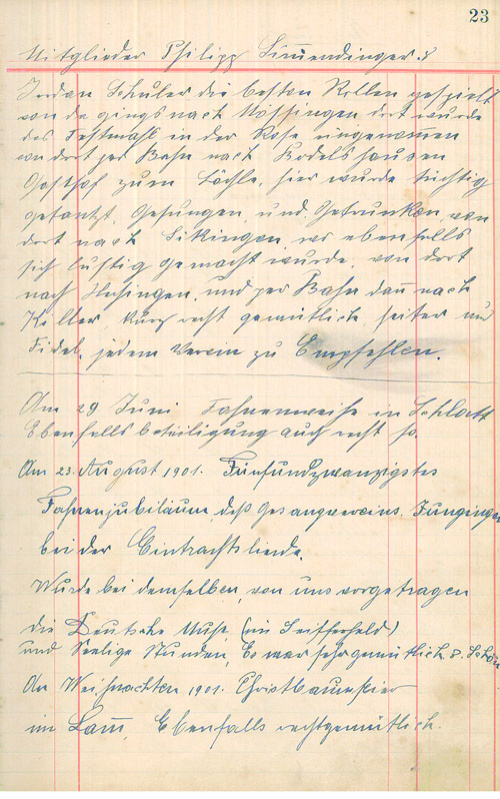 23
Mitglieder Philipp Simmendinger &
Jordan Schuler die besten Rollen gespielt
von da gings nach Mössingen dort wurde
das Festmahl in der Rose eingenommen
von dort per Bahn nach Bodelshausen
Gasthof zum Löchle, hier wurde tüchtig
getantzt, Gesungen, und Getrunken, von
dort nach Sikingen, wo ebenfalls
sich lustig gemacht wurde, von dort
nach Hechingen, und per Bahn dan̄ nach
Killer, kurz recht gemütlich, heiter und
Fidel, jedem Verein zu Empfehlen.
Am 29 Juni Fahnenweihe in Schlatt
Ebenfalls beteiligung auch recht so.
Am 23. August 1901. Fünfundzwanzigstes
Fahnenjubiläum deß Gesangvereins Jungingen
bei der Eintrachtslinde.
Wurde bei demselben, von uns vorgetragen
die Deutsche Muse, (im Seifferheld)
und Seelige Stunden, Es war sehr gemütlich & Schön
An Weihnachten 1901. Christbaumfeier
im Lam̄, Ebenfalls recht gemütlich.